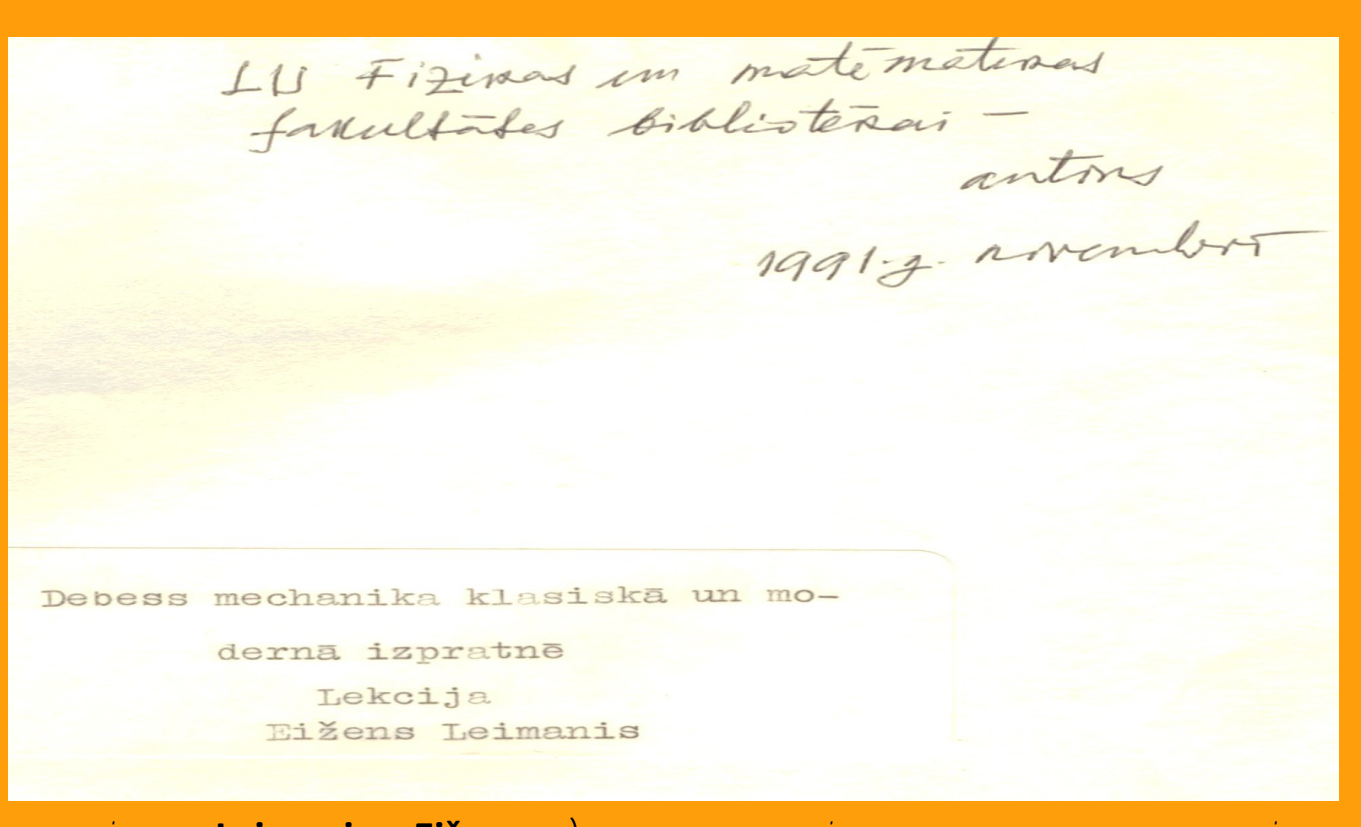 LU Fizikas un matēmatikas
fakultātes bibliotēkai —
autors
1991.g. novembrī
Debess mechanika klasiskā un mo-
dernā izpratnē
Lekcija
Eižens Leimanis